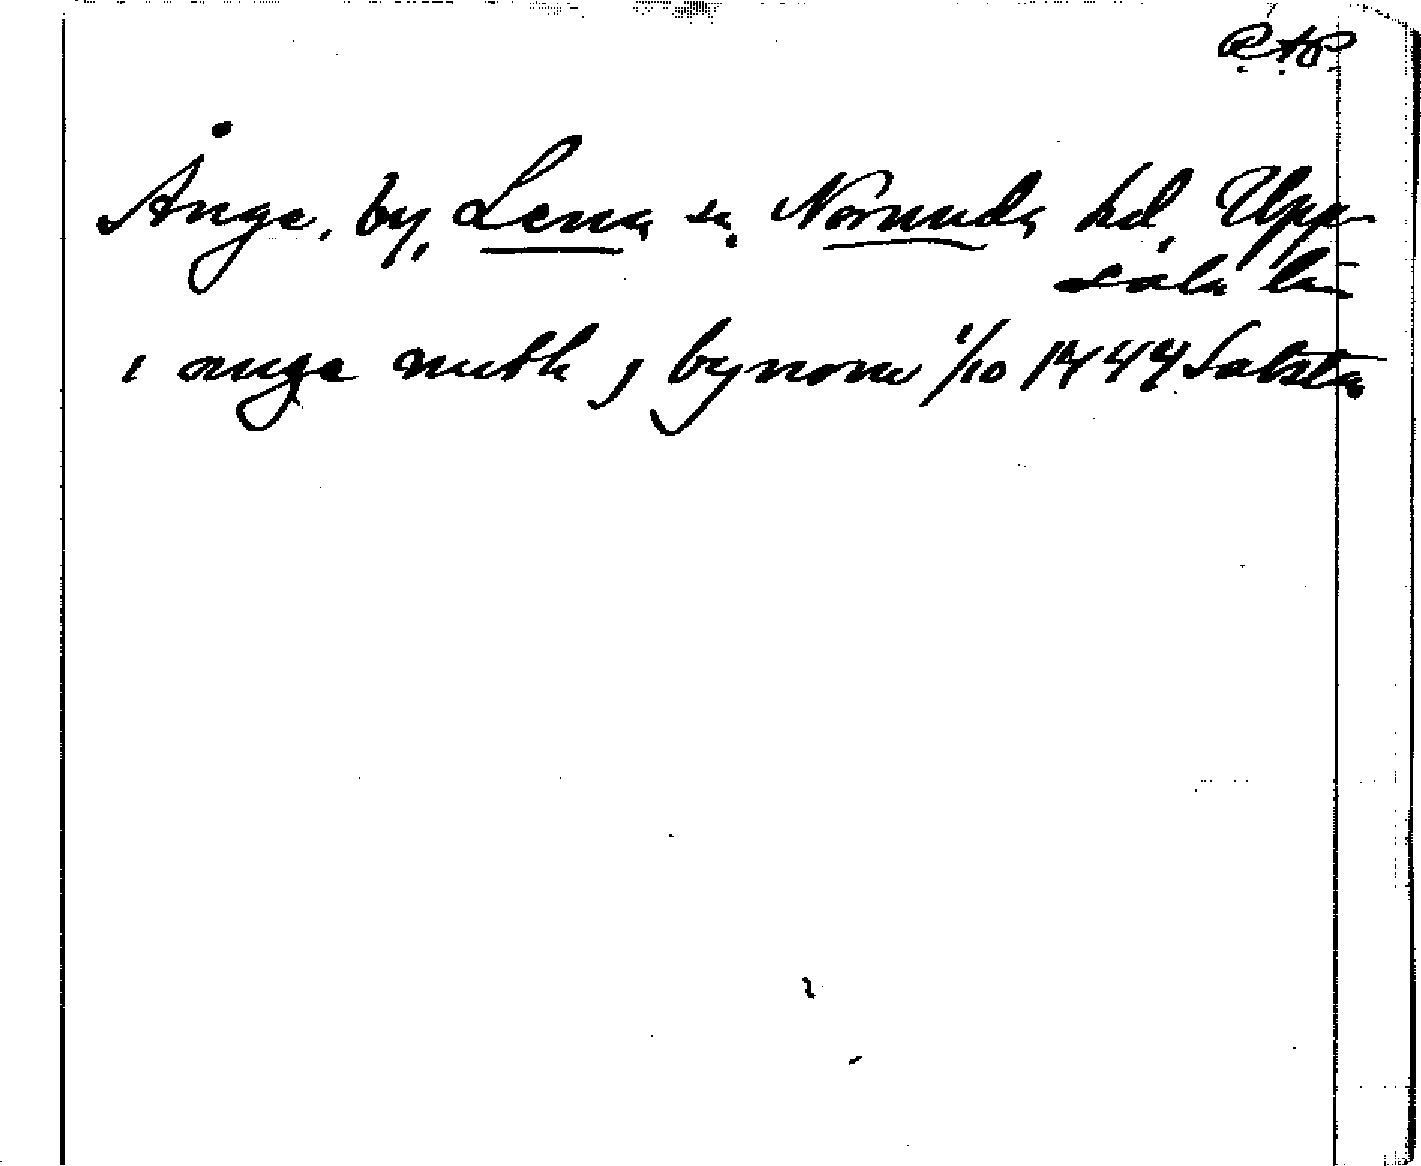 R.A.P.
Ånge, by, Lena sn. Norunda hd, Upp-
sala län
i ange meth j bynom 1/10 1444 Salsta